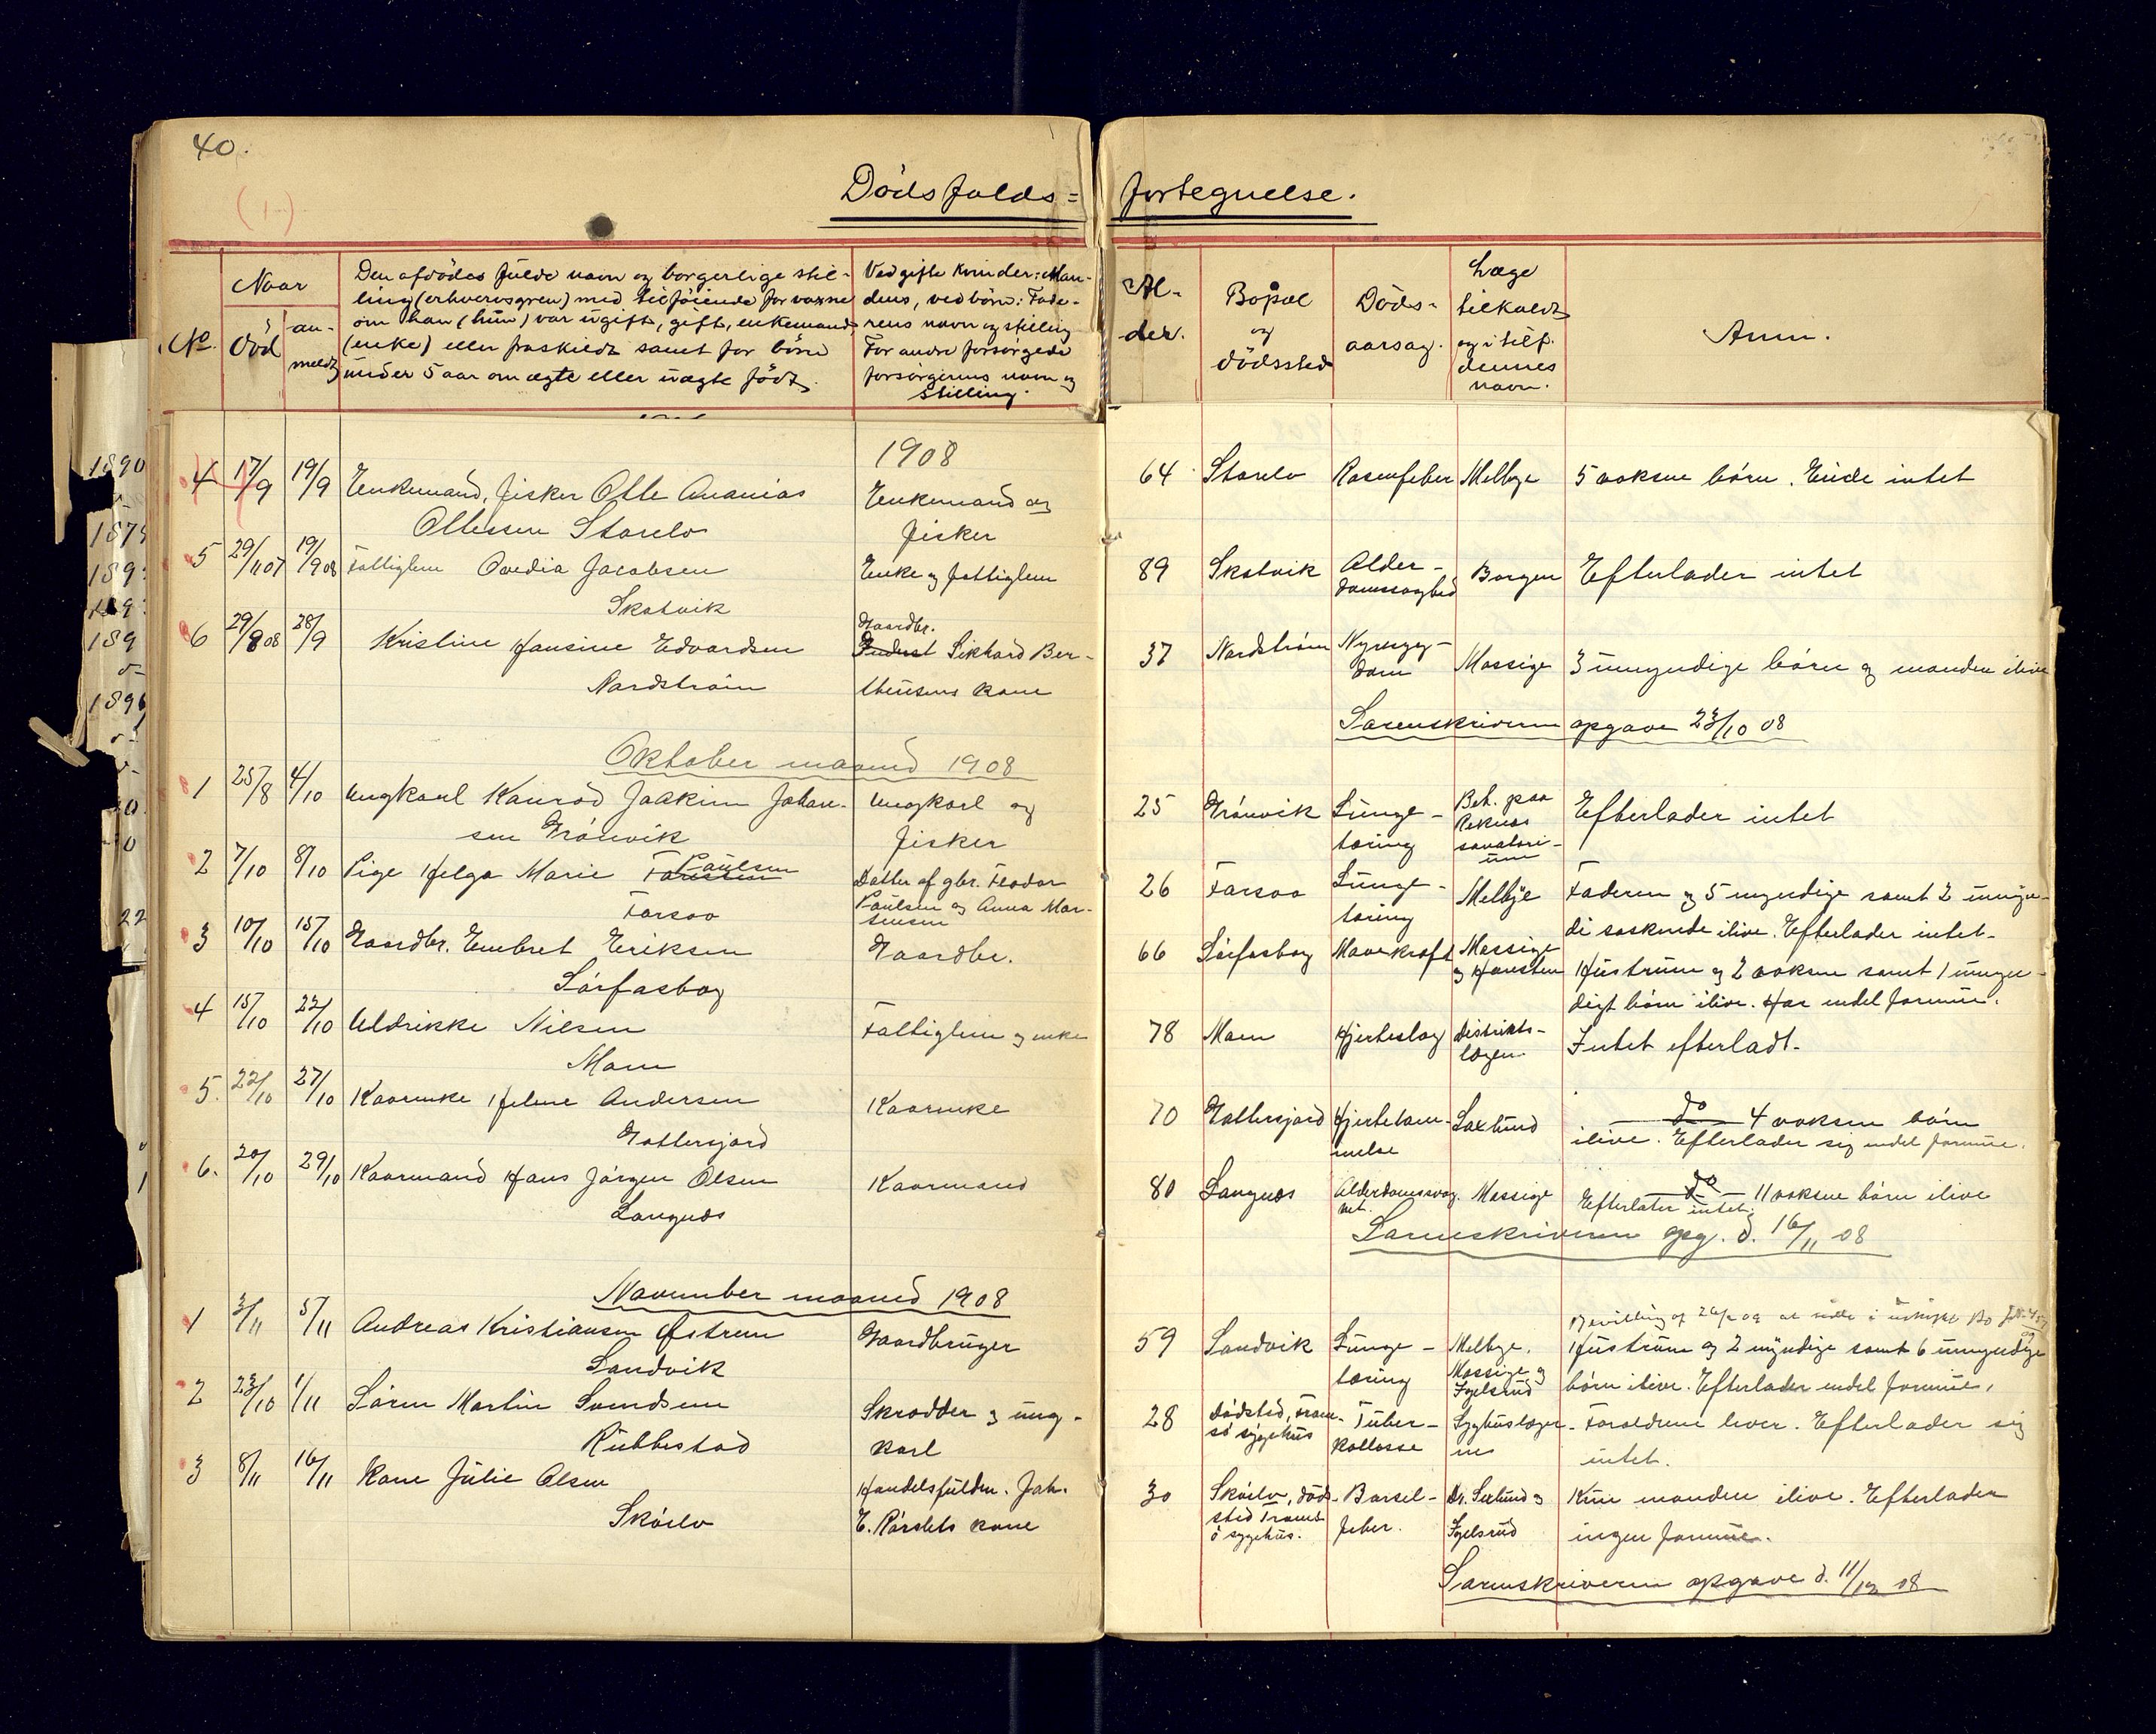 40.
Dødsfalds= fortegnelse.
No.
Naar
död
an-
meldt
Den afdödes fulde navn og borgerlige stil-
ling (erhvervsgren) med tilföiende for voxne
om han (hun) var ugift, gift, enkemand
(enke) eller fraskildt samt for börn
under 5 aar om ægte eller uægte födt.
Ved gifte kvinder: Man-
dens, ved börn: Fade-
rens navn og stilling
For andre forsörgede
forsörgerens navn og
stilling.
Al-
der.
Bopæl
og
dödssted
Döds-
aarsag.
Læge
tilkaldt
og i tilf.
dennes
navn.
Anm.
1908
4 17/9 19/9 Enkemand, fisker Otte Ananias
Ottesen Storelv
Enkemand og
fisker
64 Storelv Rosenfeber Melbye 5 voksne börn. Eiede intet
5 29/11 07 19/9 08 Fattiglem Ovedia Jacobsen
Skatvik
Enke og fattiglem
89 Skatvik Alder-
domssvaghed
Borgen Efterlader intet
6 29/8 08 28/9 Kristine Hansine Edvardsen
Nordström
Gaardbr.
Sikhard Ber-
theusens kone
37 Nordström Nyresyg-
dom
Massige 3 umyndige börn og manden ilive
Sorenskriveren opgave 23/10 08
Oktober maaned 1908
1 25/8 4/10 Ungkarl Konrad Joakim Johan-
sen Grönvik
Ungkarl og
fisker
25 Grönvik Lunge-
tæring
Beh. paa
Reknæs
sanatori-
um
Efterlader intet
2 7/10 8/10 Pige Helga Marie Paulsen
Farsoa
Datter af gbr. Feodor
Paulsen og Anna Mar-
26 Farsoa Lunge-
tæring
Melbye Faderen og 5 myndige samt 2 umyn-
di söskende ilive. Efterlader intet.
3 10/10 15/10 Gaardbr. Embret Eriksen
Sörfasbog
Gaardbr.
66 Sörfasbog Mavekræft Massige
og Hansteen
Hustruen og 2 voksne samt 1 umyn-
digt börn ilive. Har endel formue.
4 15/10 22/10 Uldrikke Nilsen
Moen
Fattiglem og enke
78 Moen Hjerteslag Distrikts-
lægen
Intet efterladt.
5. 22/10 27/10 Kaarenke Helene Andersen
Gottersjord
Kaarenke
70 Gottersjord Hjertelam-
melse
Saxlund do 4 voksne börn
ilive. Efterlader sig endel formue.
6. 20/10 29/10 Kaarmand Hans Jörgen Olsen
Langnes
Kaarmand
80 Langnes Alderdomssvag-
het.
Massige do 11 voksne börn ilive
Efterlater intet.
Sorenskriveren opg. d. 16/11 08
November maaned 1908
1 3/11 5/11 Andreas Kristiansen Østrem
Sandvik
Gaardbruger
59 Sandvik Lunge-
tæring
Melbye.
Massige og
Fogelsrud
Hustruen og 2 myndige samt 6 umyndige
börn ilive. Efterlader endel formue.
2 23/10 1/11 Sören Martin Svendsen
Rubbestad
Skrædder og ung-
karl
28 Dödsted, Trom-
sö sygehus
Tuber-
kollosse
Sygehuslæger-
ne
Forældrene lever. Efterlader sig
intet.
3 8/11 16/11 Kone Julie Olsen
Sköelv
Handelsfuldm. Joh.
E. Rörslets kone
30 Sköelv, död-
sted Troms
ö sygehus.
Barsel-
feber.
Dr. Sexlund og
Fogelsrud
Kun manden ilive. Efterlader
ingen formue.
Sorenskriveren opgave d. 11/12 08